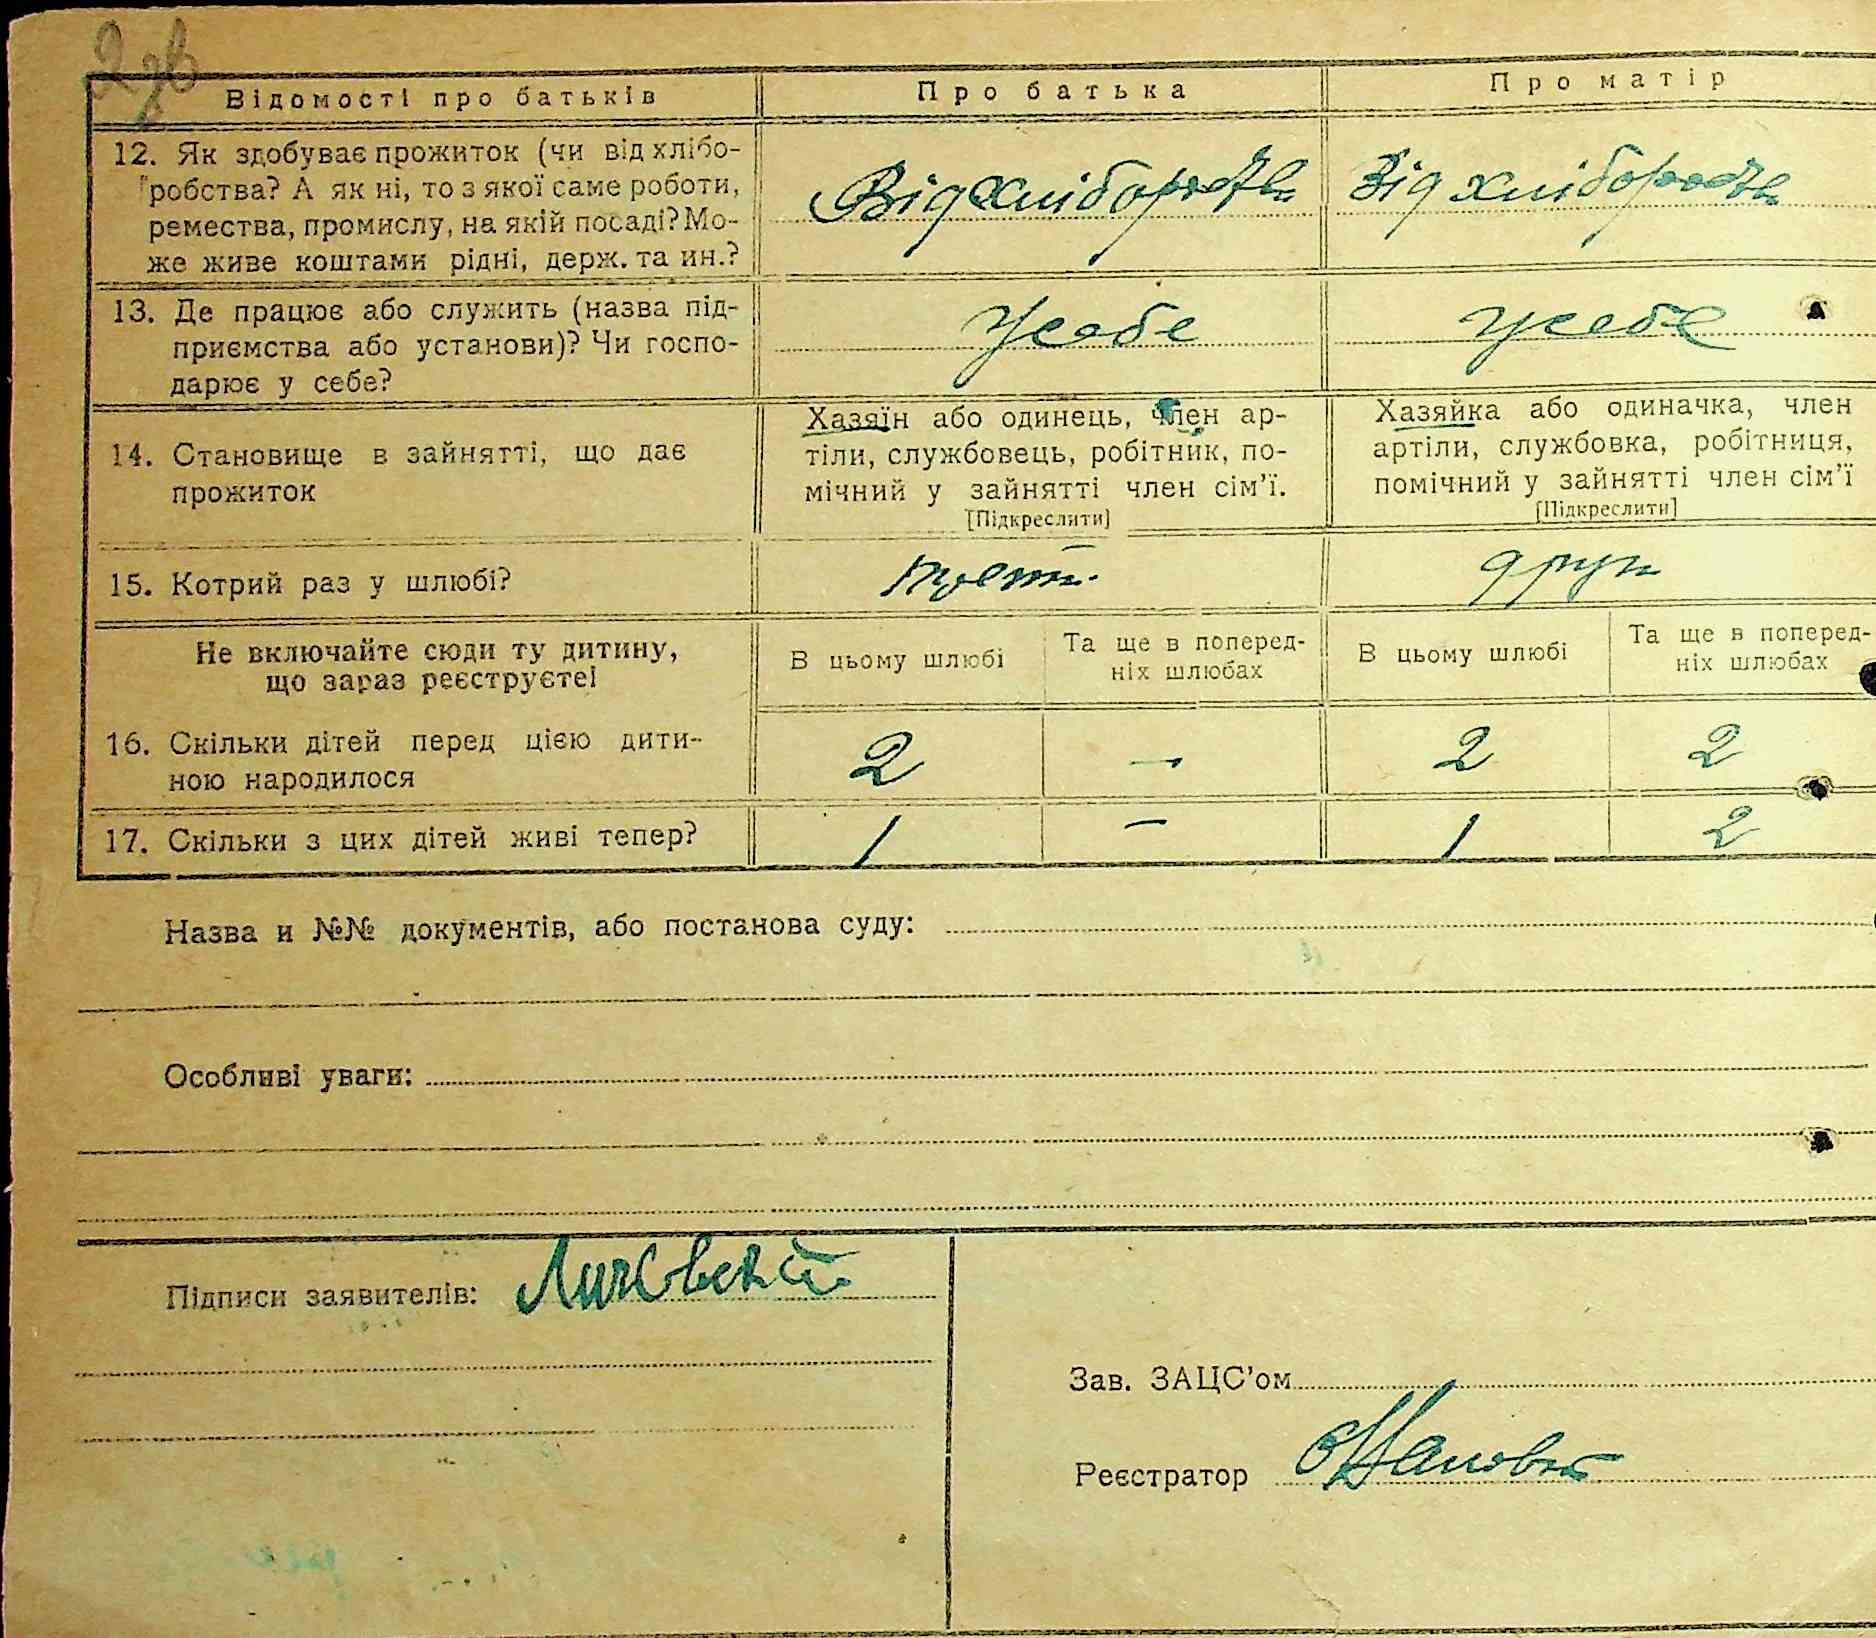 2зв
Відомості про батьків
Про батька
Про матір
12. Як здобуває прожиток (чи від хлібо-
робства? А як ні, то з якої саме роботи,
ремества, промислу, на якій посаді? Мо-
же живе коштами рідні, держ. та ин.?
Від хліборобства
Від хліборобства
13. Де працює або служить (назва під-
приємства або установи)? Чи госпо-
дарює у себе?
У себе
у себе
14. Становище в зайнятті, що дає
прожиток
Хазяїн або одинець, член ар-
тіли, службовець, робітник, по-
мічний у зайнятті член сім'ї.
[Підкреслити]
Хазяйка або одиначка, член
артіли, службовка, робітниця,
помічний у зайнятті член сім'ї
[Підкреслити]
15. Котрий раз у шлюбі?
други
Не включайте сюди ту дитину,
що зараз реєструєте!
В цьому шлюбі
Та ще в поперед-
ніх шлюбах
В цьому шлюбі
Та ще в поперед-
ніх шлюбах
16. Скільки дітей перед цією дити-
ною народилося
2
—
2
2
17. Скільки з цих дітей живі тепер?
1
—
1
2
Назва и №№ документів, або постанова суду:
Особливі уваги:
Підписи заявителів:
Зав. ЗАЦС'ом
Реєстратор